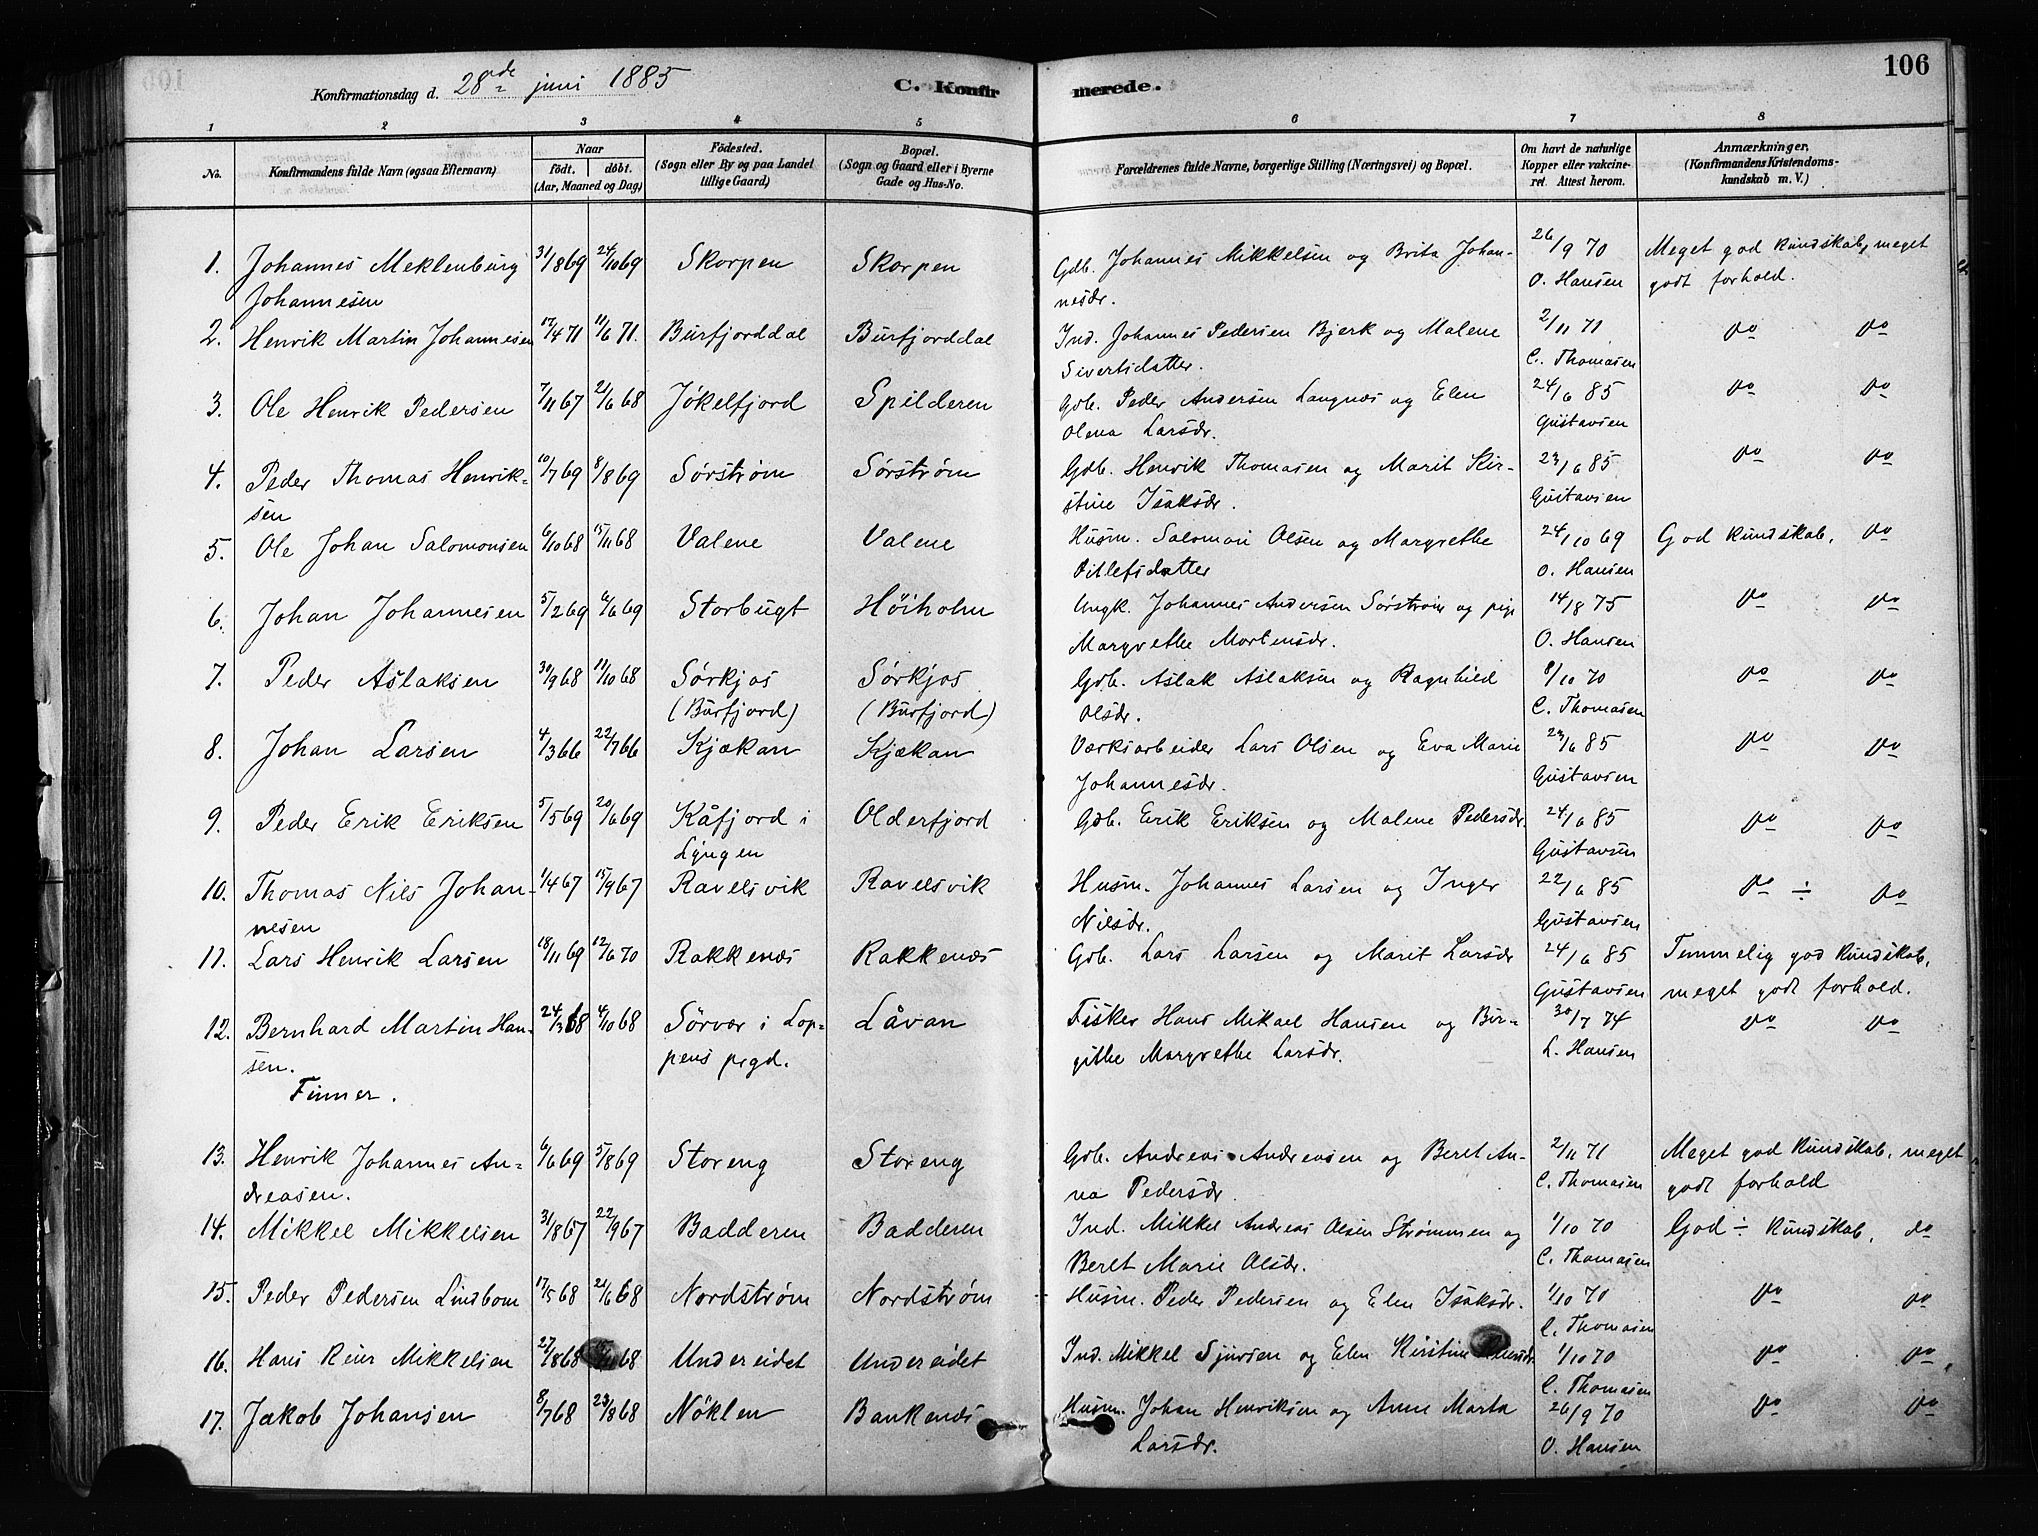 106
Konfirmationsdag d. 28de juni 1885
C. Konfirmerede.
1 2 3 4 5 6 7 8
No. Konfirmandens fulde Navn (ogsaa Efternavn) Naar født. døbt. (Aar, Maaned og Dag) Fødested. (Sogn eller By og paa Landet tillige Gaard) Bopæl. (Sogn og Gaard eller i Byerne Gade og Hus-No. Forældrenes fulde Navne, borgerlige Stilling (Næringsvei) og Bopæl. Om havt de naturlige Kopper eller vakcineret. Attest herom. Anmærkninger, (Konfirmandens Kristendomskundskab m. V.)
1. Johannes Meklenburg 31/8 69 24/10 69 Skorpen Skorpen Gdb. Johannes Mikkelsen og Brita Johan- 26/9 70 Meget god kundskab, meget
Johannesen nesdr. O. Hansen godt forhold.
2. Henrik Martin Johannesen 17/4 71 11/6 71. Burfjorddal Burfjorddal Ind. Johannes Pedersen Bjerk og Malene 2/11 71 do do
Sivertsdatter. C. Thomasen
3. Ole Henrik Pedersen 7/11 67 21/6 68 Jøkelfjord Spilderen Gdb. Peder Andersen Langnæs og Elen 24/6 85 do do
Olena Larsdr. Gustavsen
4. Peder Thomas Henrik- 10/7 69 8/8 69 Sørstrøm Sørstrøm Gdb. Henrik Thomasen og Marit Kir- 23/6 85 do do
sen stine Isaksdr. Gustavsen
5. Ole Johan Salomonsen 6/10 68 15/11 68 Valene Valene Husm. Salomon Olsen og Margrethe 24/10 69 God kundskab, do
Ditlefsdatter O. Hansen
6. Johan Johannesen 5/2 69 6/6 69 Storbugt Høiholm Ungk. Johannes Andersen Sørstrøm og pige 14/8 75 do do
Margrethe Mortensdr. O. Hansen
7. Peder Aslaksen 30/9 68 11/10 68 Sørkjos Sørkjos Gdb. Aslak Aslaksen og Ragnhild 8/10 70 do do
(Burfjord) (Burfjord) Olsdr. C. Thomasen
8. Johan Larsen 4/3 66 22/7 66 Kjækan Kjækan Værksarbeider Lars Olsen og Eva Marie 23/6 85 do do
Johannesdr. Gustavsen
9. Peder Erik Eriksen 5/5 69 20/6 69 Kåfjord i Olderfjord Gdb. Erik Eriksen og Malene Pedersdr. 24/6 85 do do
Lyngen Gustavsen
10. Thomas Nils Johan- 1/4 67 15/9 67 Ravelsvik Ravelsvik Husm. Johannes Larsen og Inger 22/6 85 do ÷ do
nesen Nilsdr. Gustavsen
11. Lars Henrik Larsen 18/11 69 12/6 70 Rakkenæs Rakkenæs Gdb. Lars Larsen og Marit Larsdr 24/6 85 Temmelig god kundskab,
Gustavsen meget godt forhold.
12. Bernhard Martin Han- 24/3 68 4/10 68 Sörvær i Lop- Låvan Fisker Hans Mikael Hansen og Bir- 30/7 74 do do
sen. pens prgd. githe Margrethe Larsdr. L. Hansen
Finner.
13. Henrik Johannes An- 6/6 69 5/8 69 Storeng Storeng Gdb. Andreas Andreasen og Beret An- 2/11 71 Meget god kundskab, meget
dreasen. na Pedersdr. C. Thomasen godt forhold
14. Mikkel Mikkelsen 31/8 67 22/9 67 Badderen Badderen Ind. Mikkel Andreas Olsen Strømmen og 1/10 70 God ÷ kundskab, do
Beret Marie Olsdr. C. Thomasen
15. Peder Pedersen Lindbom 17/5 68 21/6 68 Nordstrøm Nordstrøm Husm. Peder Pedersen og Elen Isaksdr. 1/10 70 do do
C. Thomasen
16. Hans Reier Mikkelsen 27/8 68 /11 68 Undereidet Undereidet Ind. Mikkel Sjursen og Elen Kirstine 1/10 70 do do
C. Thomasen
17. Jakob Johansen 8/7 68 23/8 68 Nöklen Bankenæs Husm. Johan Henriksen og Anne Marta 26/9 70 do do
Larsdr. O. Hansen